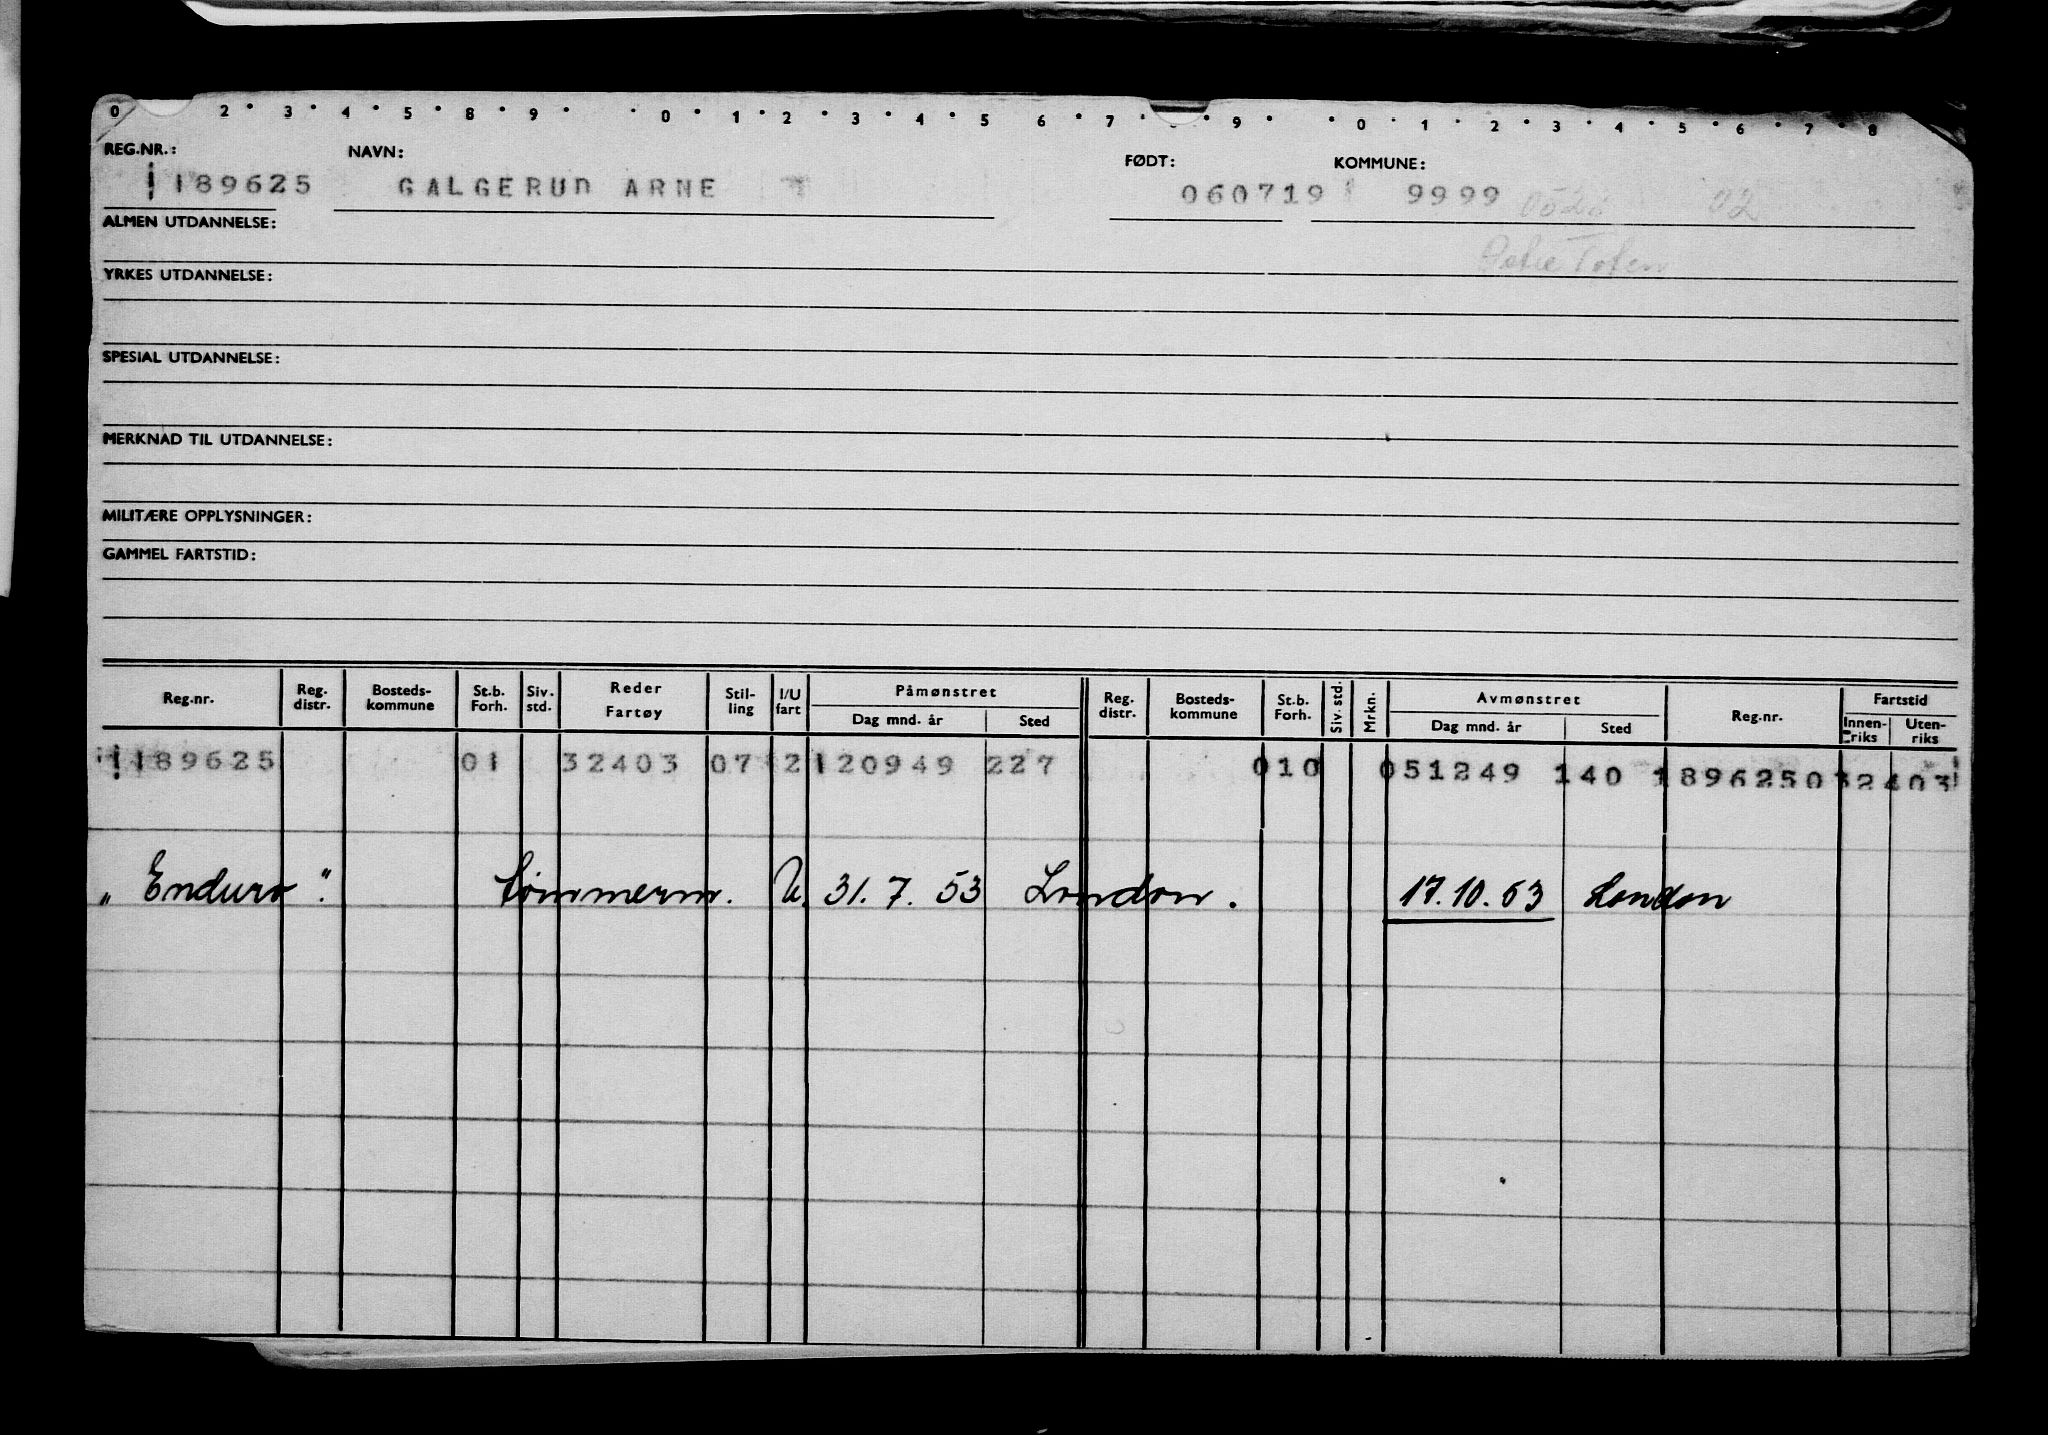 0 2 3 4 5 8 9 0 1 2 3 4 5 6 7 9 0 1 2 3 4 5 6 7 8
REG.NR.: NAVN: FØDT: KOMMUNE:
189625 GALGERUD ARNE 060719 9999 02
ALMEN UTDANNELSE:
Østre Toten
YRKES UTDANNELSE:
SPESIAL UTDANNELSE:
MERKNAD TIL UTDANNELSE:
MILITÆRE OPPLYSNINGER:
GAMMEL FARTSTID:
Reg.nr. Reg. distr. Bosteds-kommune St.b. Forh. Siv. std. Reder Fartøy Stil-ling I/U fart Påmønstret Dag mnd. år Sted Reg. distr. Bosteds-kommune St.b. Forh. Siv. std. Mrkn. Avmønstret Dag mnd. år Sted Reg.nr. Fartstid Innen-riks Uten-riks
189625 01 32403 07 2 120949 227 010 051249 140 189625032403
"Enduro". tømmerm. U. 31.7.53 London. 17.10.53 London